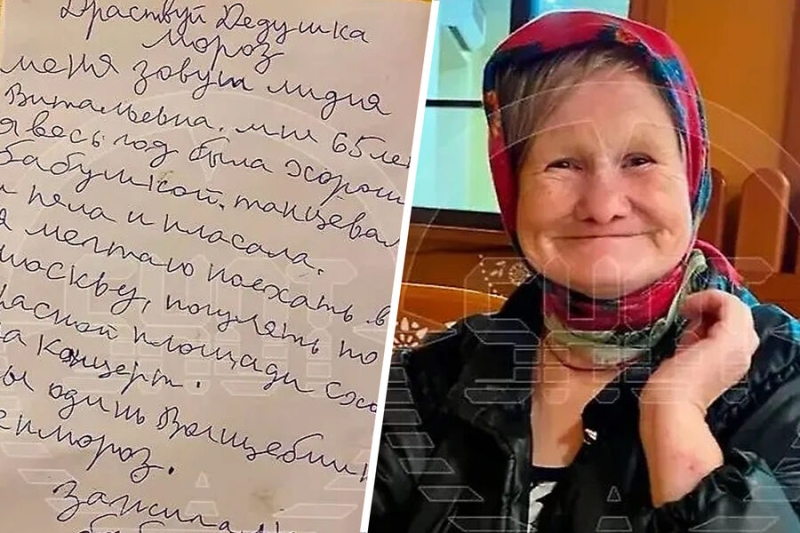 Драствуй Дедушка
Мороз
меня зовут лидия
Витальевна. мне 65 ле
я весь год была хорош
бабушкой. танцевал
и пела и пласала.
я мечтаю поехать в
москву, погулять по
расной площади схо
а концерт.
ы один
мороз.